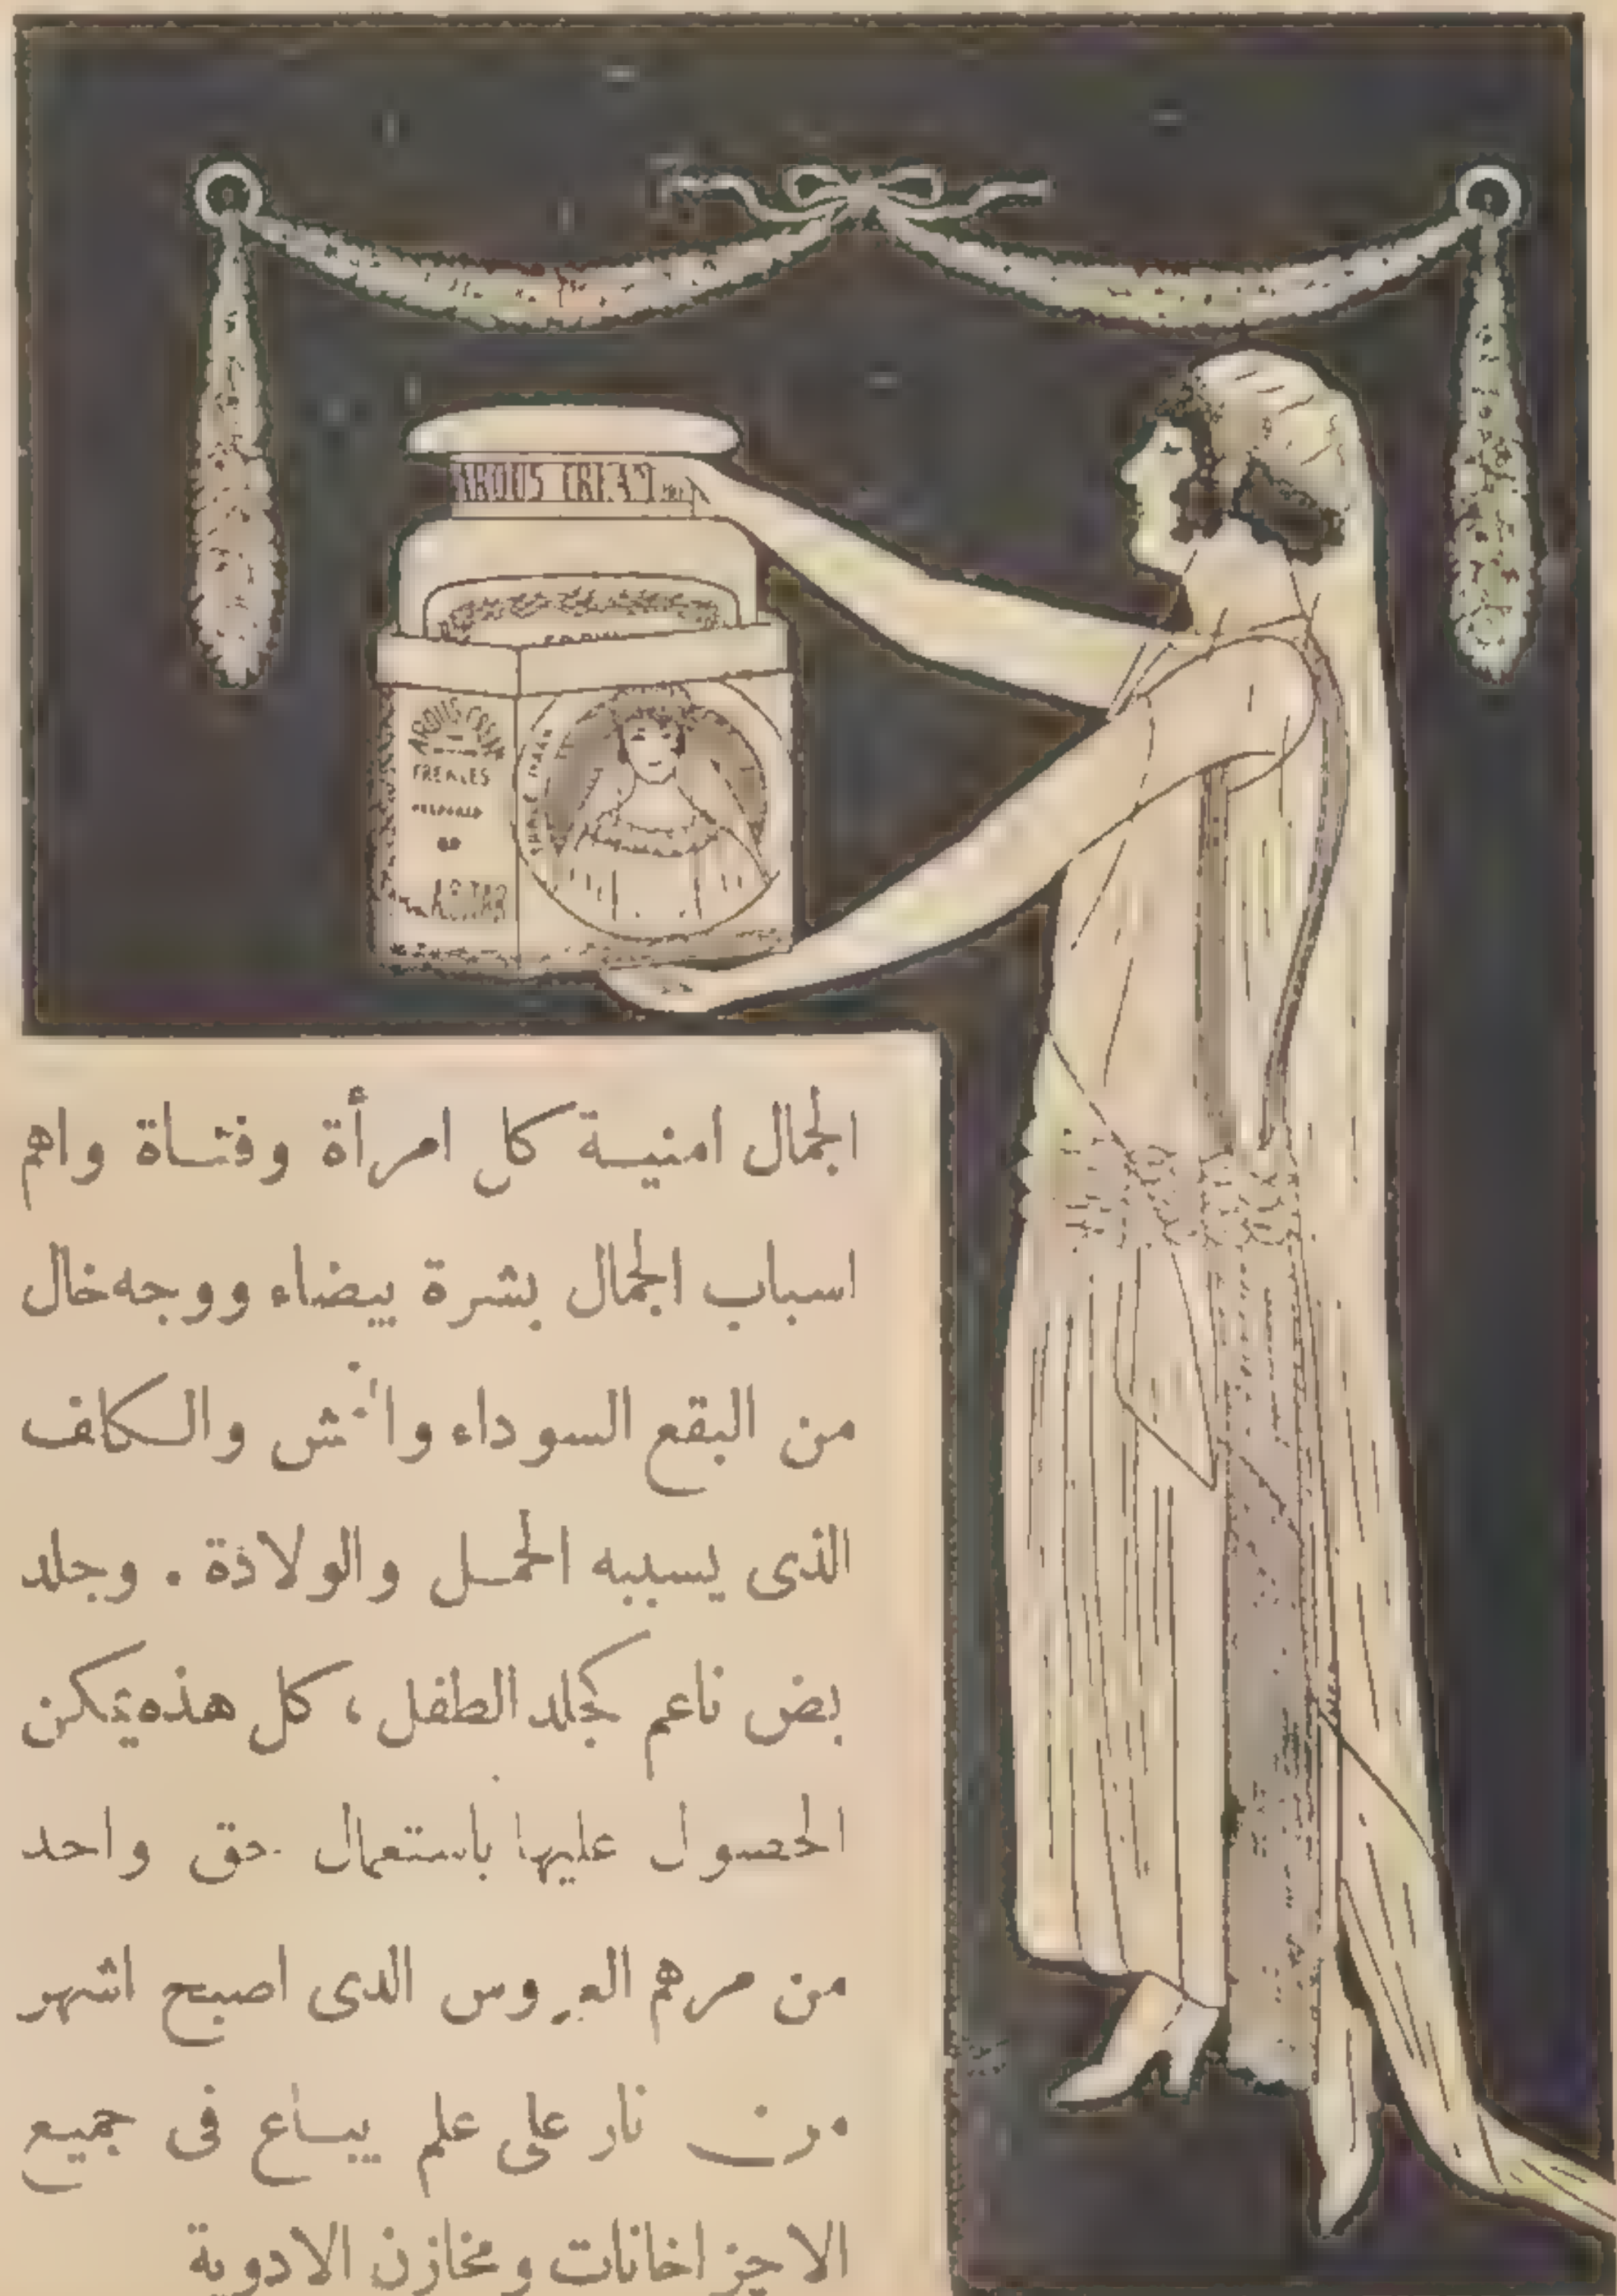 AROUS CREAM
AROUS CREAM
FREKLES
PREPARED
الجمال امنيـة كل امرأة وفتـاة واهم
اسباب الجمال بشرة بيضاء ووجه خال
من البقع السوداء والـكاف
الذى يسببه الحمـل والولادة . وجلد
بض ناعم كجلد الطفل ، كل هذه يمكن
الحصول عليها باستعمال حق واحد
من مرهم العروس الذى اصبح اشهر
من نار على علم يبـاع فى جميع
الاجزاخانات ومخازن الادوية